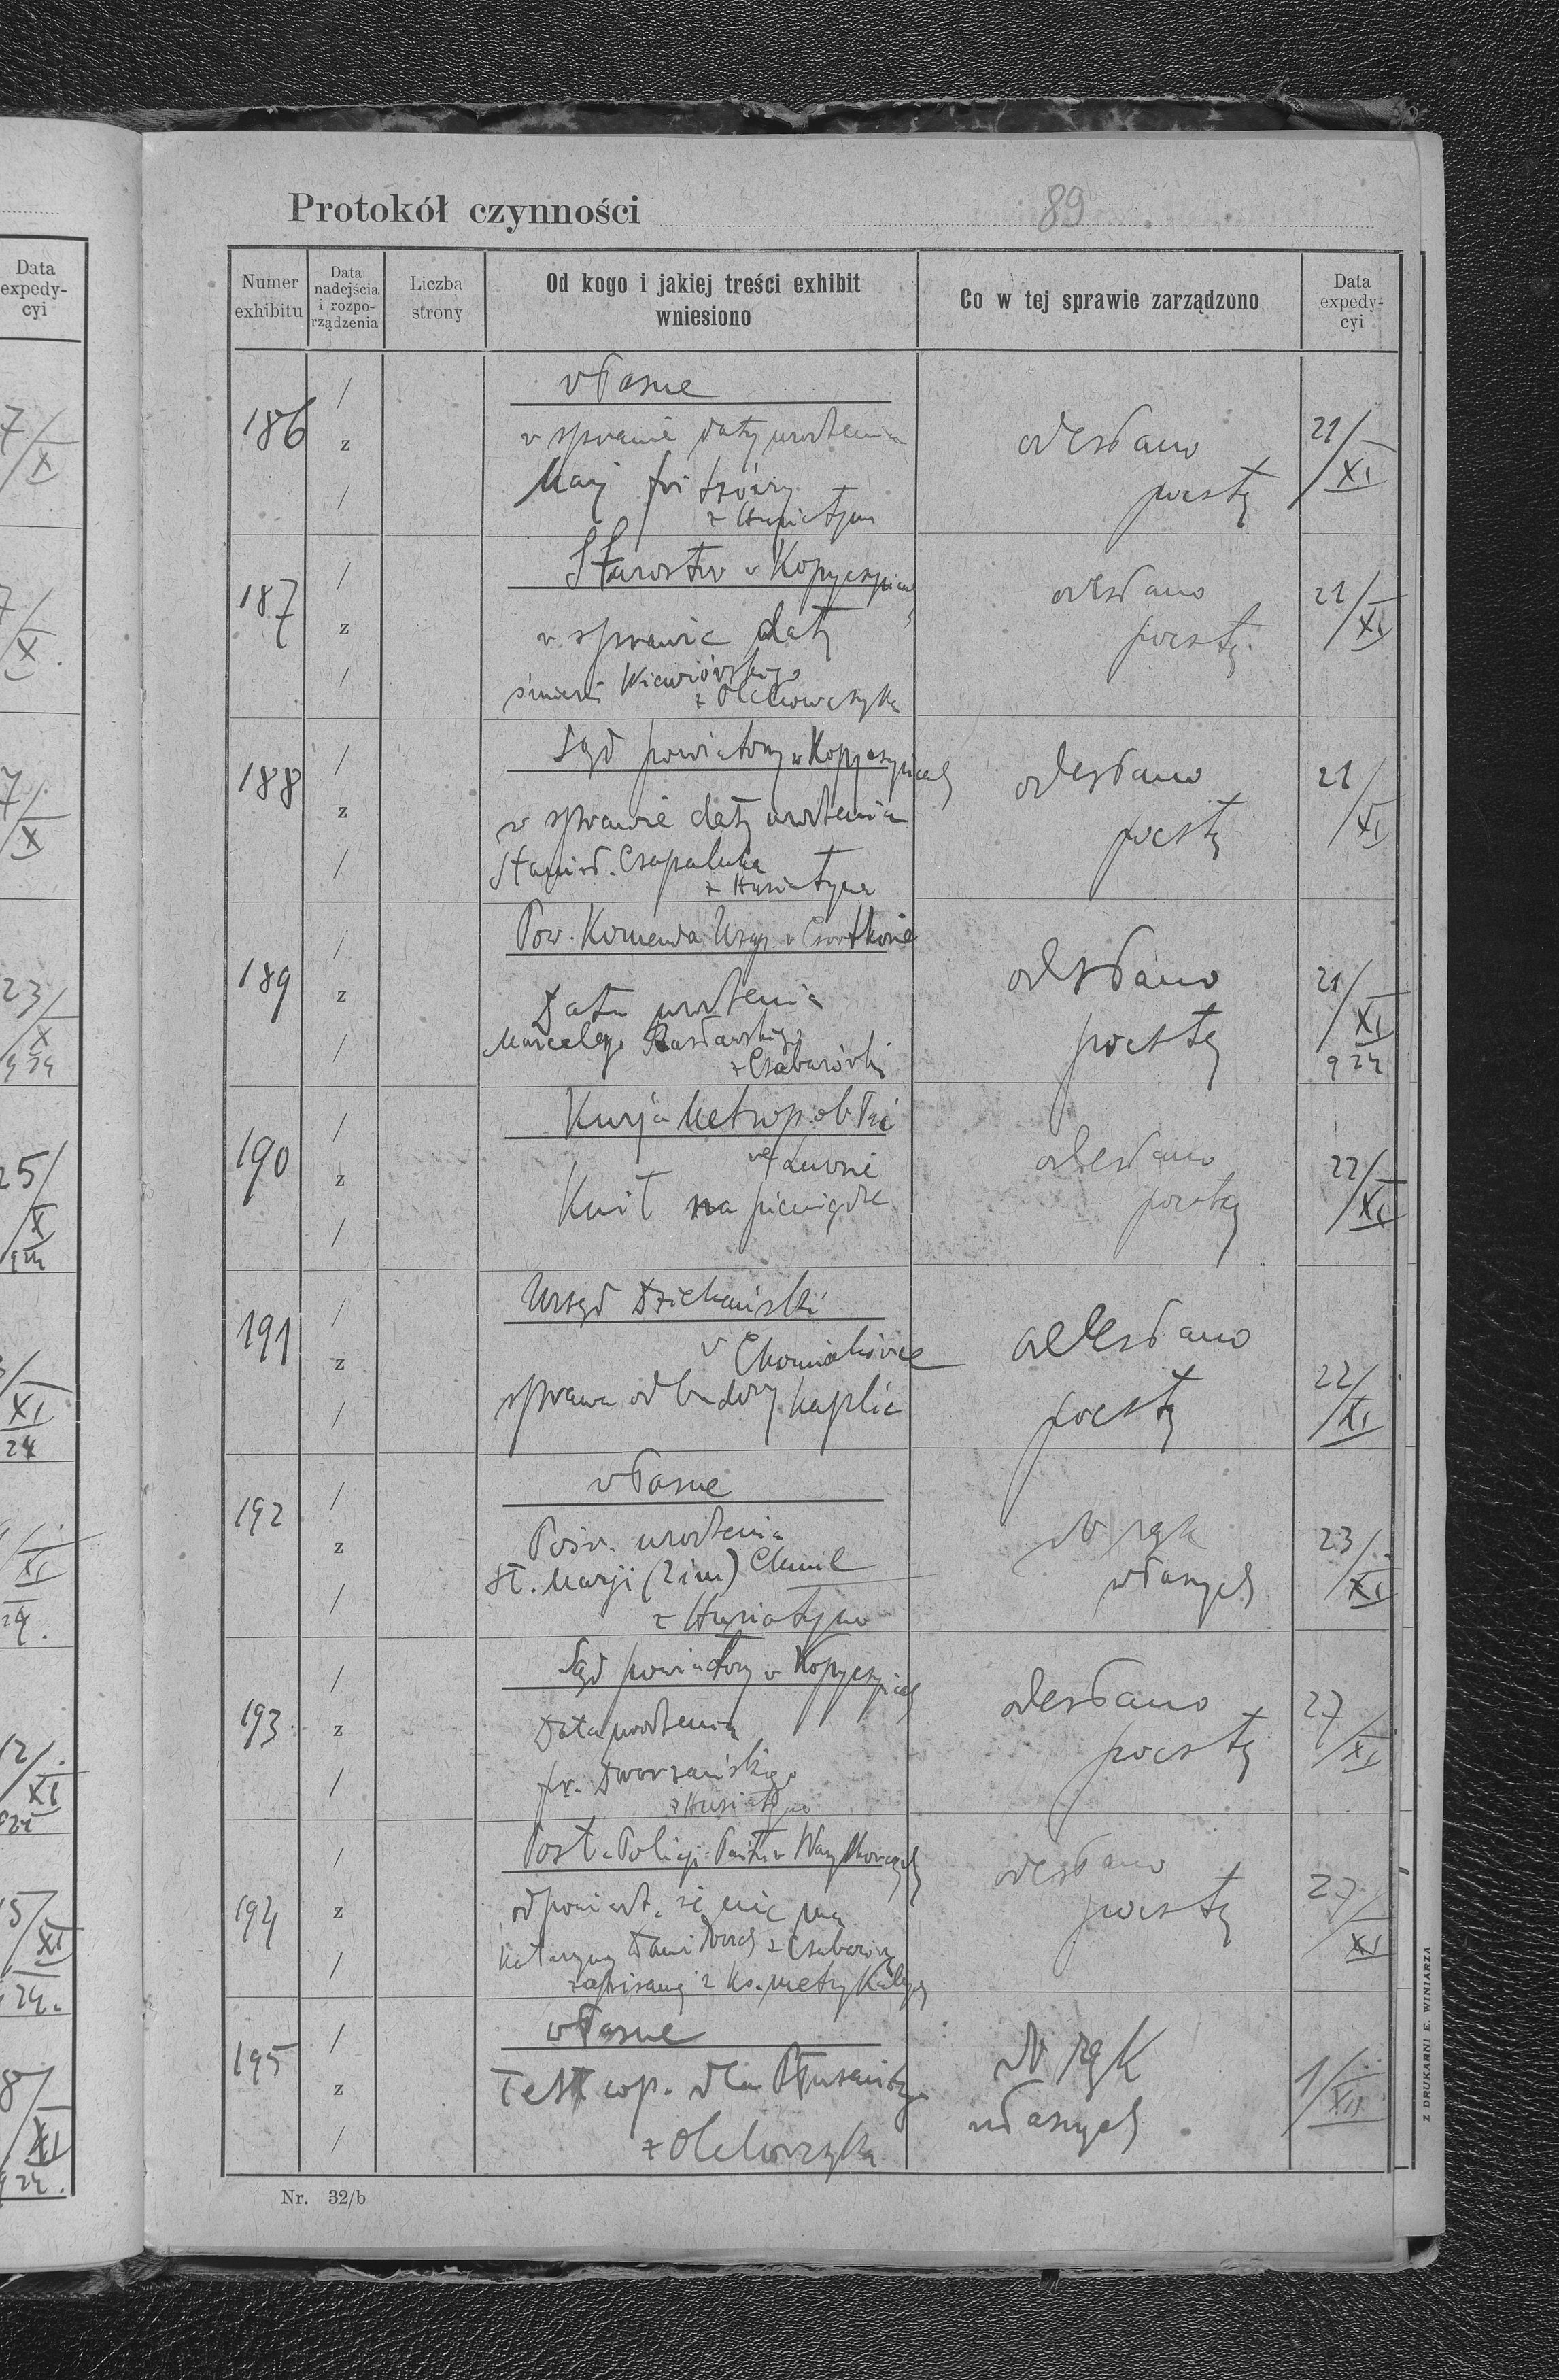 Protokół czynności 89
Numer exhibitu
Data nadejścia i rozporządzenia
Liczba strony
Od kogo i jakiej treści exhibit wniesiono
Co w tej sprawie zarządzono
Data expedycyi
186 / z /
własne
w sprawie daty urodzenia
Marji
z Husiatyna
odesłano
pocztą
21/XI
187 / z /
Starostwo w Kopyczyńcach
w sprawie daty
śmierci Wiewiórskiego
z Olchowczyka
odesłano
pocztą
21/XI
188 / z /
Sąd powiatowy w Kopyczyńcach
w sprawie daty urodzenia
Stanisł. Czapaluka
z Husiatyna
odesłano
pocztą
21/XI
189 / z /
Pow. Komenda Uzup. w Czortkowie
Data urodzenia
Marcelego
z Czabarówki
odesłano
pocztą
21/XI
924
190 / z /
Kurja Metropolit.
we Lwowie
Kwit na pieniądze
odesłano
pocztą
22/XI
191 / z /
Urząd Dziekański
w Chomiakówce
sprawa odbudowy kaplic
odesłano
pocztą
22/XI
192 / z /
własne
Pośw. urodzenia
St. Marji (2 im) Chmil
z Husiatyna
do rąk
własnych
23/XI
193 / z /
Sąd powiatowy w Kopyczyńcach
Data urodzenia
fr. Dworzańskiego
z Husiatyna
odesłano
pocztą
27/XI
194 / z /
Post. Policji Państw.
odpowiedź, że nie ma
Katarzyny z Czabarówki
zapisanej z ks. metrykalnych
odesłano
pocztą
27/XI
195 / z /
własne
Test cop. dla
z Olchowczyka
do rąk
własnych
1/XII
Nr. 32/b
Z DRUKARNI E. WINIARZA
Data expedycyi